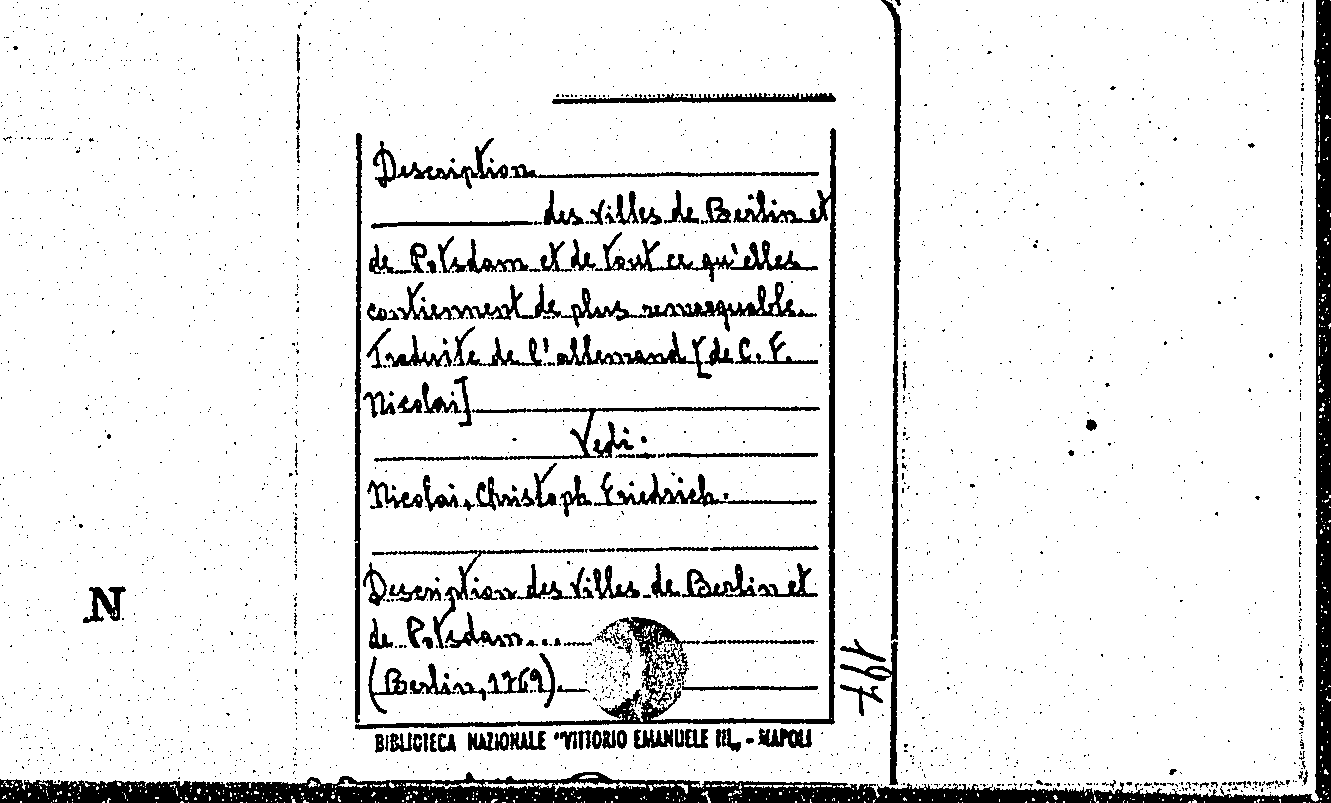 Description
des villes de Berlin et
de Potsdam et de tout ce qu'elles
contiennent de plus remarquable.
Traduite de l'allemand [de C. F.
Nicolai]
Vedi:
Nicolai, Christoph Friedrich.
Description des villes de Berlin et
de Potsdam...
(Berlin, 1769).
197
N
BIBLIOTECA NAZIONALE "VITTORIO EMANUELE III„ - NAPOLI